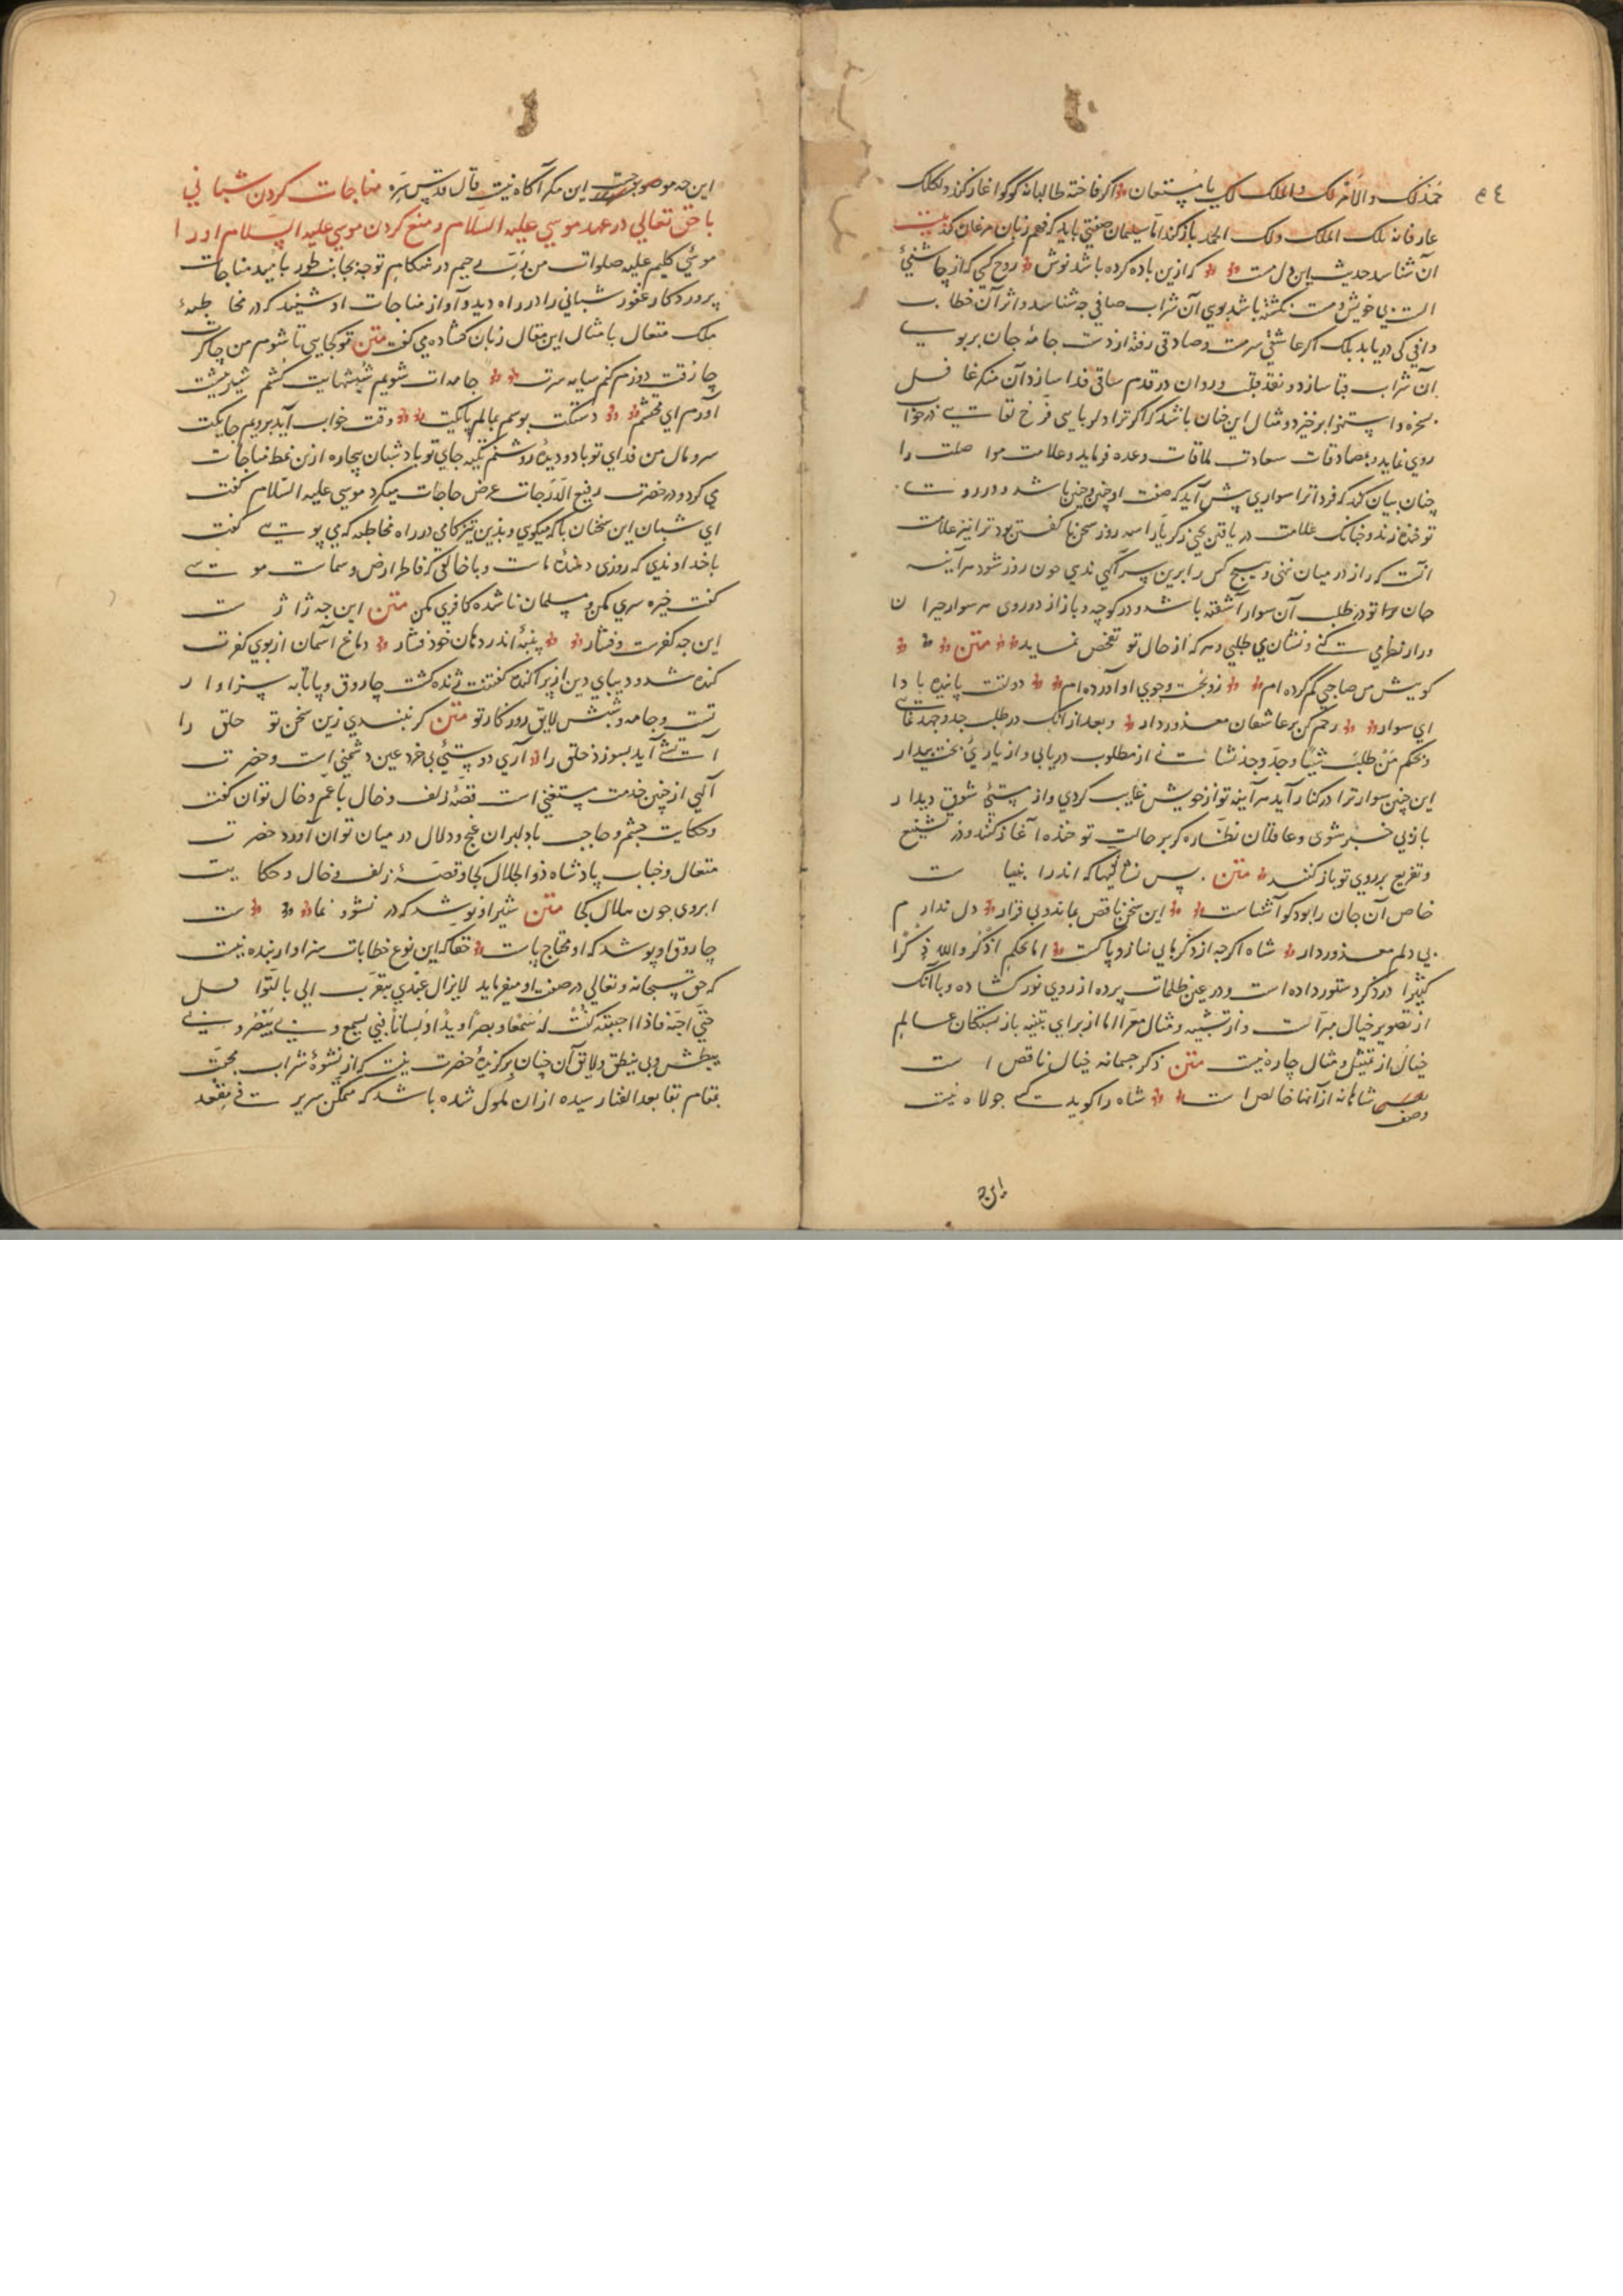 ٥٤
حمد لک والامر لک والملک لک یا مستعان اکر فاخته طالبانه کوکو اغاز کند و لکلک
عارفانه لک الملک ولک الحمد باز کند اما سلیمان صفتی باید که فهم زبان مرغان کند بیت
آن شناسد حدیث این دل مست که ازین باده کرده باشد نوش روح کسی که از چاشنیٔ
الست بی خویش و مست نکشته باشد بوی آن شراب صافی چه شناسد و اثر آن خطاب
وافی کی دریابد بلک اکر عاشقی سرمست و صادقی رفته از دست جامهٔ جان بر بوی
آن شراب قبا سازد و نقد قلب و روان در قدم ساقی فدا سازد آن منکر غافل
بسخره و استهزا برخیزد و مثال این چنان باشد که اکر ترا دلربایی فرخ لقایی در خواب
روی نماید و بمصادقات سعادت ملاقات وعده فرماید و علامت مواصلت را
چنان بیان کند که فردا ترا سواری پیش آید که صفت او چنین و چنین باشد و در روی
تو خنده زند و چنانک علامت دریافتن یحیی زکریا را سه روز سخن ناکفتن بود ترا نیز علامت
آنست که راز در میان ننهی و هیچ کس را برین سر آکهی ندهی چون روز شود هر آینه
جان تو در طلب آن سوار آشفته باشد و در کوچه و بازار در روی هر سوار حیران
وار نظر می کنی و نشان می طلبی و هر که از حال تو تفحص نماید متن
کویش من صاحبی کم کرده ام رو بجست و جوی او آورده ام دولتت پاینده بادا
ای سوار رحم کن بر عاشقان معذور دار و بعد از آنک در طلب جد و جهد نمایی
و بحکم من طلب شیئا و جد وجد نشانی از مطلوب دریابی و از یاریٔ بخت بیدار
این چنین سوار ترا در کنار آید هر آینه تو از خویش غایب کردی و از مستیٔ شوق دیدار
بازبی خبر شوی و عاقلان نظاره کر بر حالت تو خنده آغاز کنند و در تشنیع
و تفریح بر روی تو باز کنند متن پس نشانیها که اندر انبیاست
خاص آن جان را بود کو آشناست این سخن ناقص بماند و بی قرار دل ندارم
بی دلم معذور دار شاه اکرچه از ذکر مابی نیاز و پاکست اما بحکم اذکروا الله ذکرا
کثیرا در ذکر دستور داده است و در عین ظلمات پرده از روی نور کشاده و با آنک
از تصویر خیال مبراست و از تشبیه و مثال معرا اما از برای تنبیه باز بستکان عالم
خیال از تمثیل و مثال چاره نیست متن ذکر جسمانه خیال ناقص است
وصف شاهانه از آنها خالص است شاه را کوید کسی جولاه نیست
این چه
این چه موجب مدح این مکر آکاه نیست قال قدس سره مناجات کردن شبانی
با حق تعالی در عهد موسی علیه السلام و منع کردن موسی علیه السلام او را
موسی کلیم علیه صلوات من رب رحیم در هنکام توجه بجانب طور بامید مناجات
پروردکار غفور شبانی را در راه دید و آواز مناجات او شنید که در مخاطبهٔ
ملک متعال بامثال این مقال زبان کشاده می کفت متن تو کجایی تا شوم من چاکرت
چارقت دوزم کنم شانه سرت جامه ات شویم شپشهایت کشم شیر پیشت
آورم ای محتشم دستکت بوسم بمالم پایکت وقت خواب آید بروبم جایکت
سر و مال من فدای تو باد و دیدهٔ روشنم تکیه جای تو باد شبان بیچاره ازین نمط مناجات
می کرد و در حضرت رفیع الدرجات عرض حاجات میکرد موسی علیه السلام کفت
ای شبان این سخنان با که میکویی و بدین تیزکامی در راه مخاطبه که می پویی کفت
با خداوندی که روزی دهندهٔ ماست و با خالقی که فاطر ارض و سمات موسی
کفت خیره سری مکن و مسلمان ناشده کافری مکن متن این چه ژاژست
این چه کفرست و فشار پنبهٔ اندر دهان خود فشار دماغ آسمان از بوی کفرت
کنده شد و دیبای دین از پراکنده کفتنت ژنده کشت چاروق و پاتابه سزاوار
تست و جامه و شپش لایق روزکار تو متن کر نبندی زین سخن تو حلق را
آتشی آید بسوزد خلق را آری دوستیٔ بی خرد عین دشمنی است و حضرت
آلهی از چنین خدمت مستغنی است قصهٔ زلف و خال با عم و خال توان کفت
و حکایت چشم و حاجب با دلبران غنج و دلال در میان توان آورد حضرت
متعال و جناب پادشاه ذو الجلال کجا و قصهٔ زلف و خال و حکایت
ابروی چون هلال کجا متن شیر او نوشد که در نشو و نماست
چاروق او پوشد که او محتاج پاست حقا که این نوع خطابات سزاوار بنده نیست
که حق سبحانه و تعالی در صفت او میفرماید لایزال عبدی یتقرب الی بالنوافل
حتی احبه فاذا احببته کنت له سمعا و بصرا و یدا و لسانا فبی یسمع و بی یبصر و بی
یبطش و بی ینطق و لایق آن چنان برکزیدهٔ حضرت نیست که از نشوهٔ شراب محبت
بمقام بقا بعد الفنا رسیده از ان ملول شده باشد که متمکن سریر فی مقعد